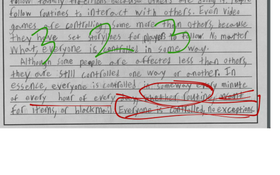 follow family traditions because others are doing it. People
follow routines to interact with others. Even video
games are controlling some more than others, because
they have set storylines for players to follow. No matter
what, everyone is controlled in some way.
Although some people are affected less than others,
they are still controlled one way or another. In
essence, everyone is controlled in someway every minute
of every hour of every day, whether routine,
for items, or blackmail. Everyone is controlled, no exceptions.